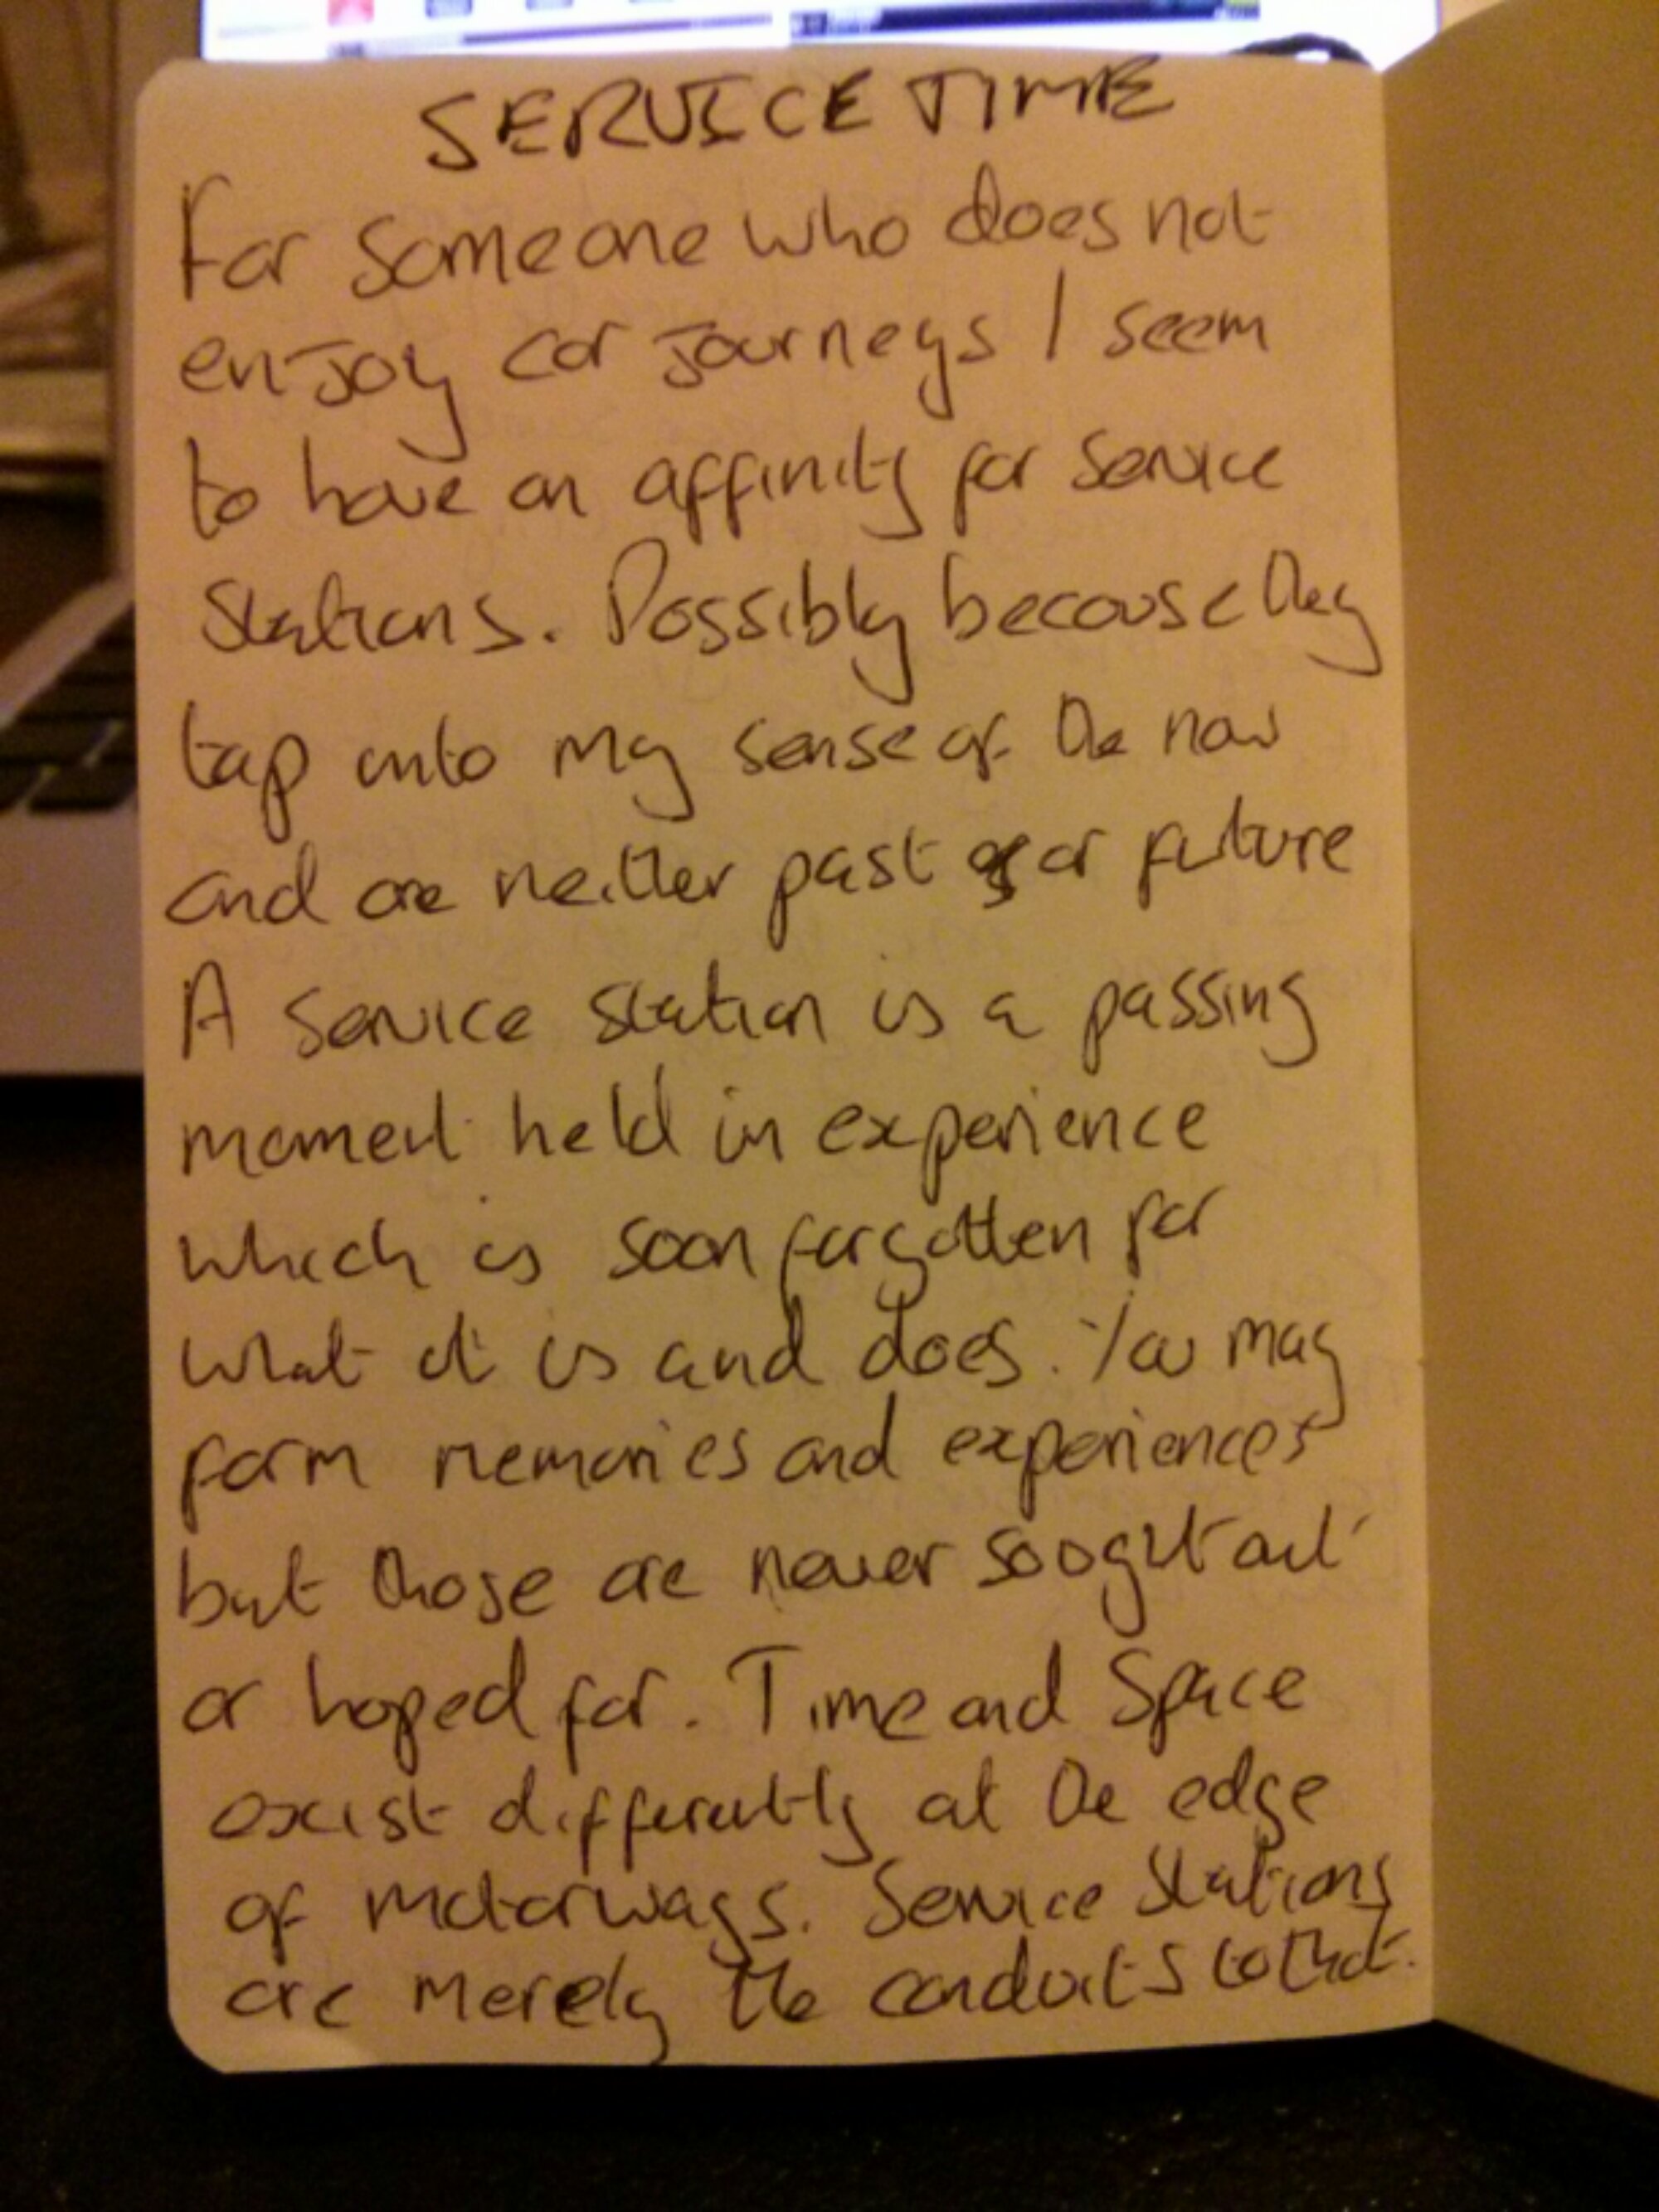 SERVICE TIME
For someone who does not
enjoy car journeys I seem
to have an affinity for service
stations. Possibly because they
tap into my sense of the now
and are neither past or future
A service station is a passing
moment held in experience
which is soon forgotten for
what it is and does. You may
form memories and experiences
but those are never sought out
or hoped for. Time and Space
exist differently at the edge
of motorways. Service Stations
are merely the conduits to that.